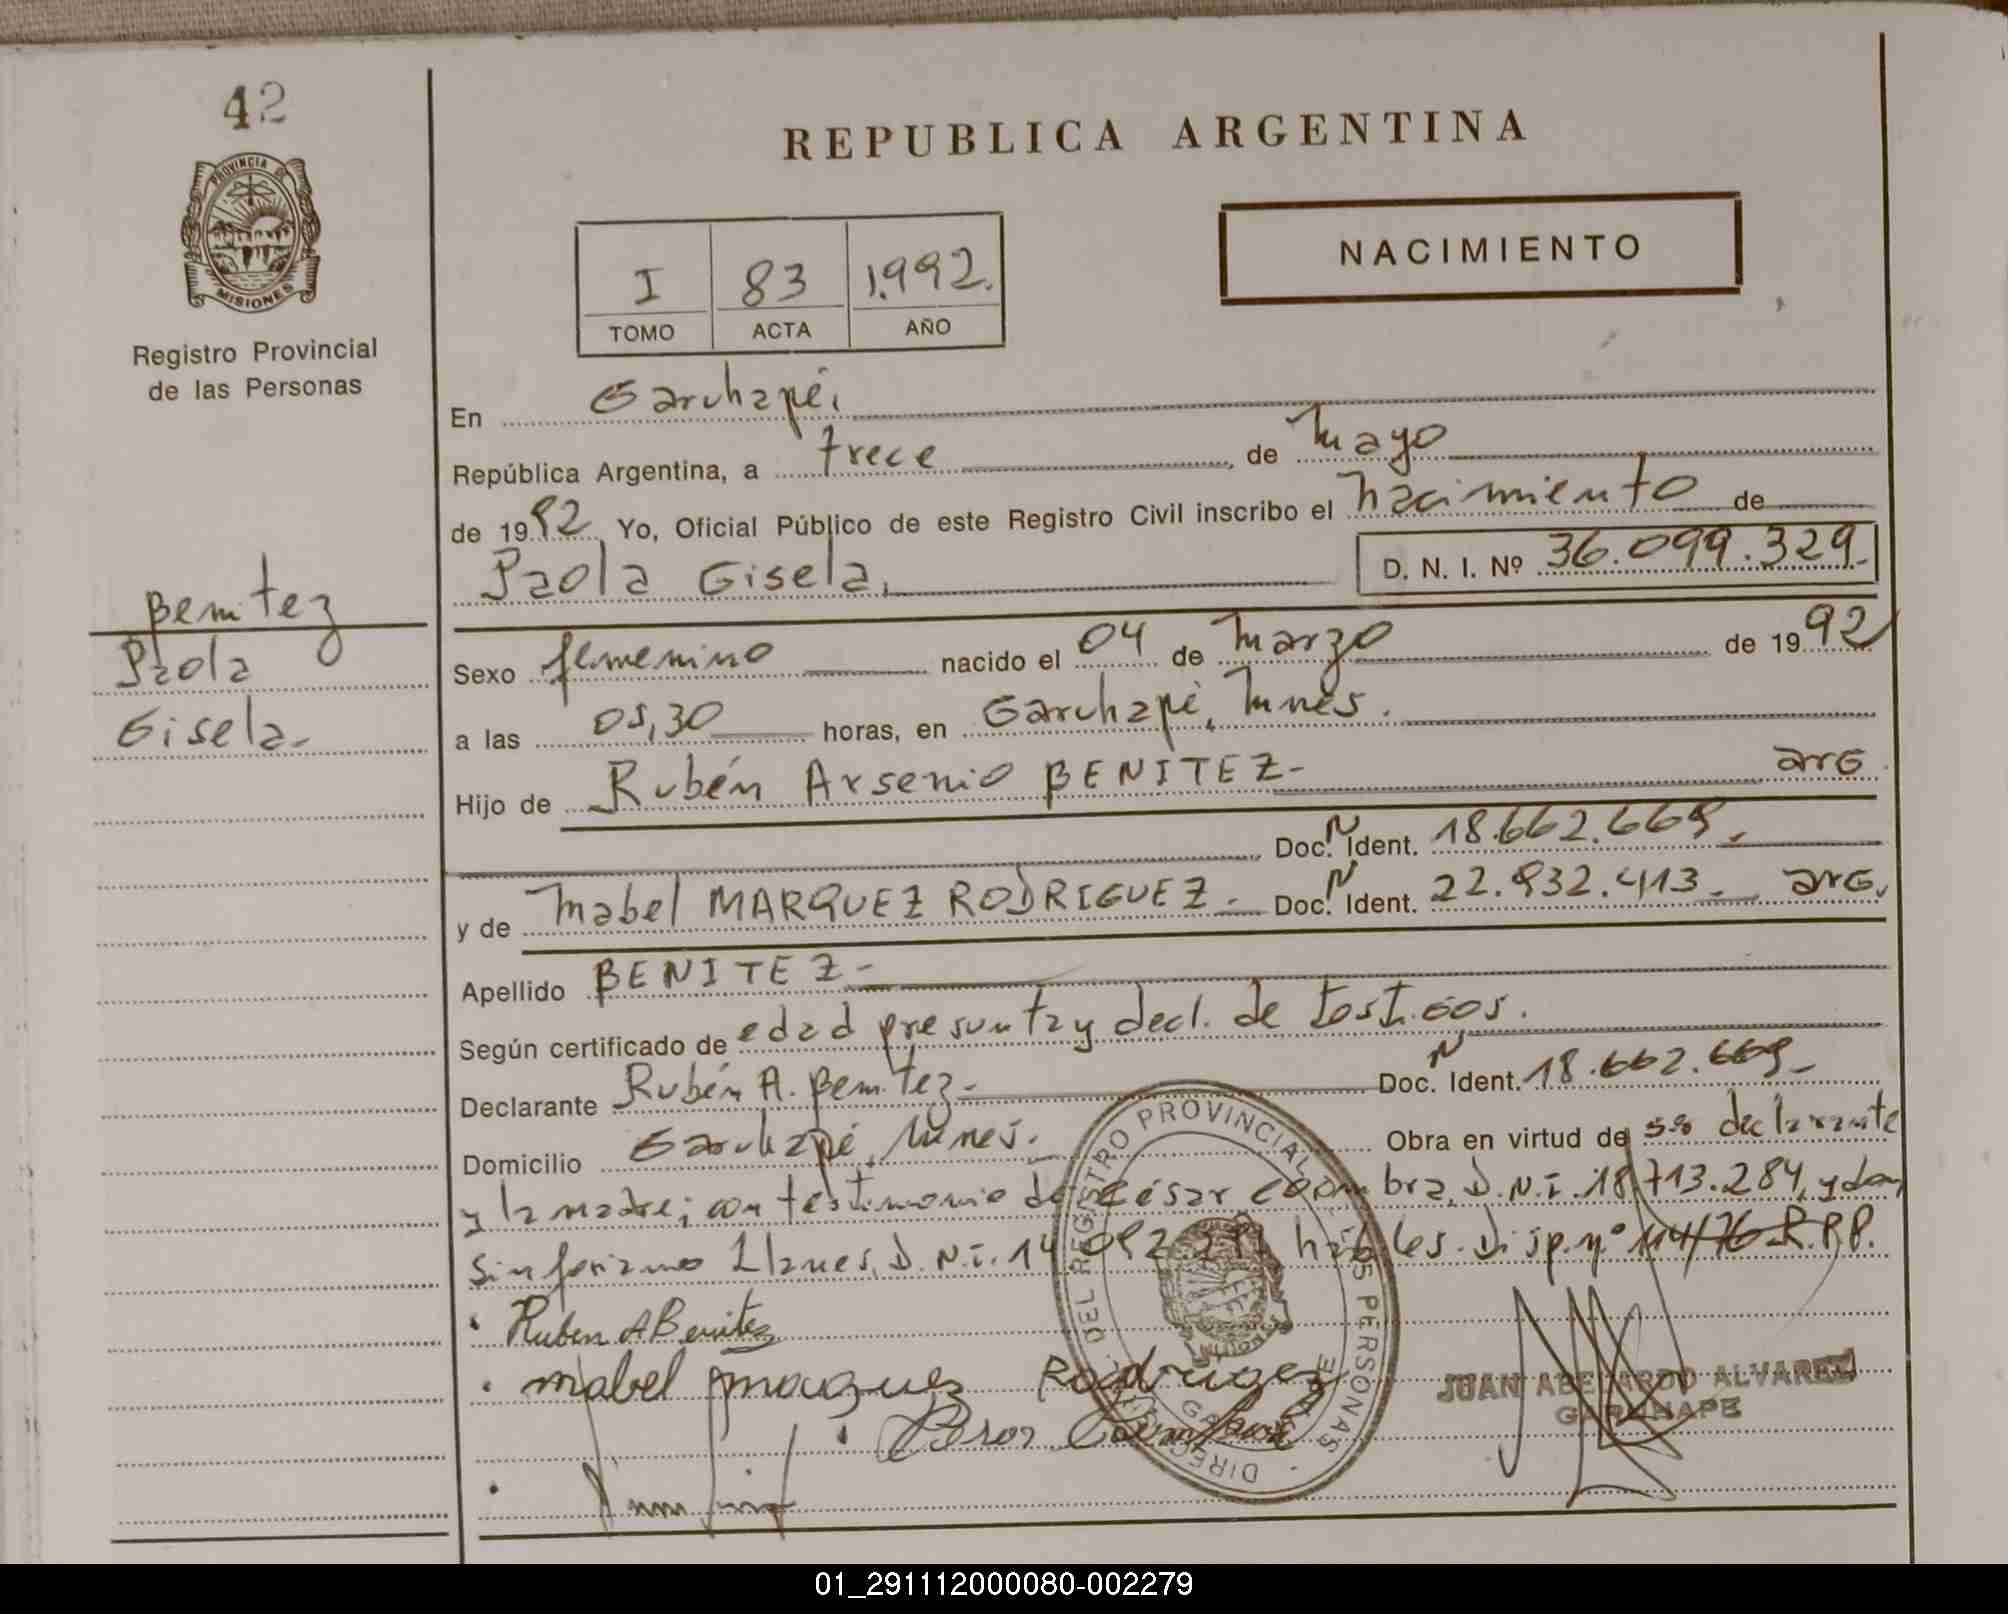 42
PROVINCIA DE
MISIONES
Registro Provincial
de las Personas
REPUBLICA ARGENTINA
NACIMIENTO
I 83 1.992.
TOMO ACTA AÑO
En Garuhapé,
República Argentina, a trece, de Mayo
de 1992 Yo, Oficial Público de este Registro Civil inscribo el nacimiento de
Paola Gisela, D. N. I. Nº 36.099.329.
Benitez
Paola
Gisela.
Sexo femenino nacido el 04 de Marzo de 1992
a las 05,30 horas, en Garuhapé, Mnes.
Hijo de Rubén Arsenio BENITEZ- arG
Doc. N Ident. 18.662.669.
y de Mabel MARQUEZ RODRIGUEZ. Doc. N Ident. 22.932.413. arG.
Apellido BENITEZ-
Según certificado de edad presunta y decl. de testigos.
Declarante Rubén A. Benitez- Doc. N Ident. 18.662.669-
Domicilio Garuhapé, Mnes. Obra en virtud de ser declarante
y la madre; con testimonio de César Coimbra, D.N.I. 18.713.284, y don
Sinforiano Llanes, D.N.I. 14.092. hábiles. Disp. nº 114/76-R.P.P.
Ruben A Benitez
mabel marquez Rodriguez
DIRECCION DEL REGISTRO PROVINCIAL DE LAS PERSONAS
GARUHAPE
JUAN ABELARDO ALVAREZ
GARUHAPE
01_291112000080-002279